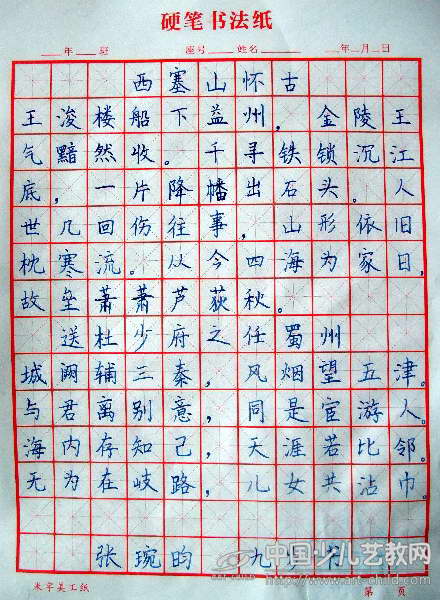 硬笔书法纸
年 班 座号 姓名 年 月 日
西塞山怀古
王浚楼船下益州，金陵王
气黯然收。千寻铁锁沉江
底，一片降幡出石头。人
世几回伤往事，山形依旧
枕寒流。从今四海为家日，
故垒萧萧芦荻秋。
送杜少府之任蜀州
城阙辅三秦，风烟望五津。
与君离别意，同是宦游人。
海内存知己，天涯若比邻。
无为在岐路，儿女共沾巾。
张琬昀 九
中国少儿艺教网
www.art-child.com
米字美工纸 第 页